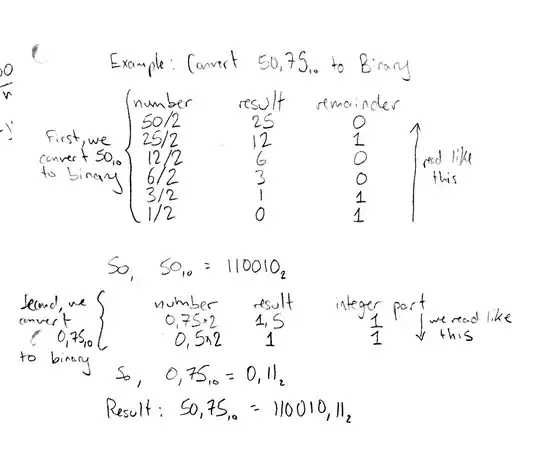 Example: Convert 50,75₁₀ to Binary
number result remainder
50/2 25 0
25/2 12 1
12/2 6 0
6/2 3 0
3/2 1 1
1/2 0 1
First, we
convert 50₁₀
to binary
read like
this
So, 50₁₀ = 110010₂
Second, we
convert
0,75₁₀
to binary
number result integer part
0,75*2 1,5 1
0,5*2 1 1
we read like
this
So, 0,75₁₀ = 0,11₂
Result: 50,75₁₀ = 110010,11₂